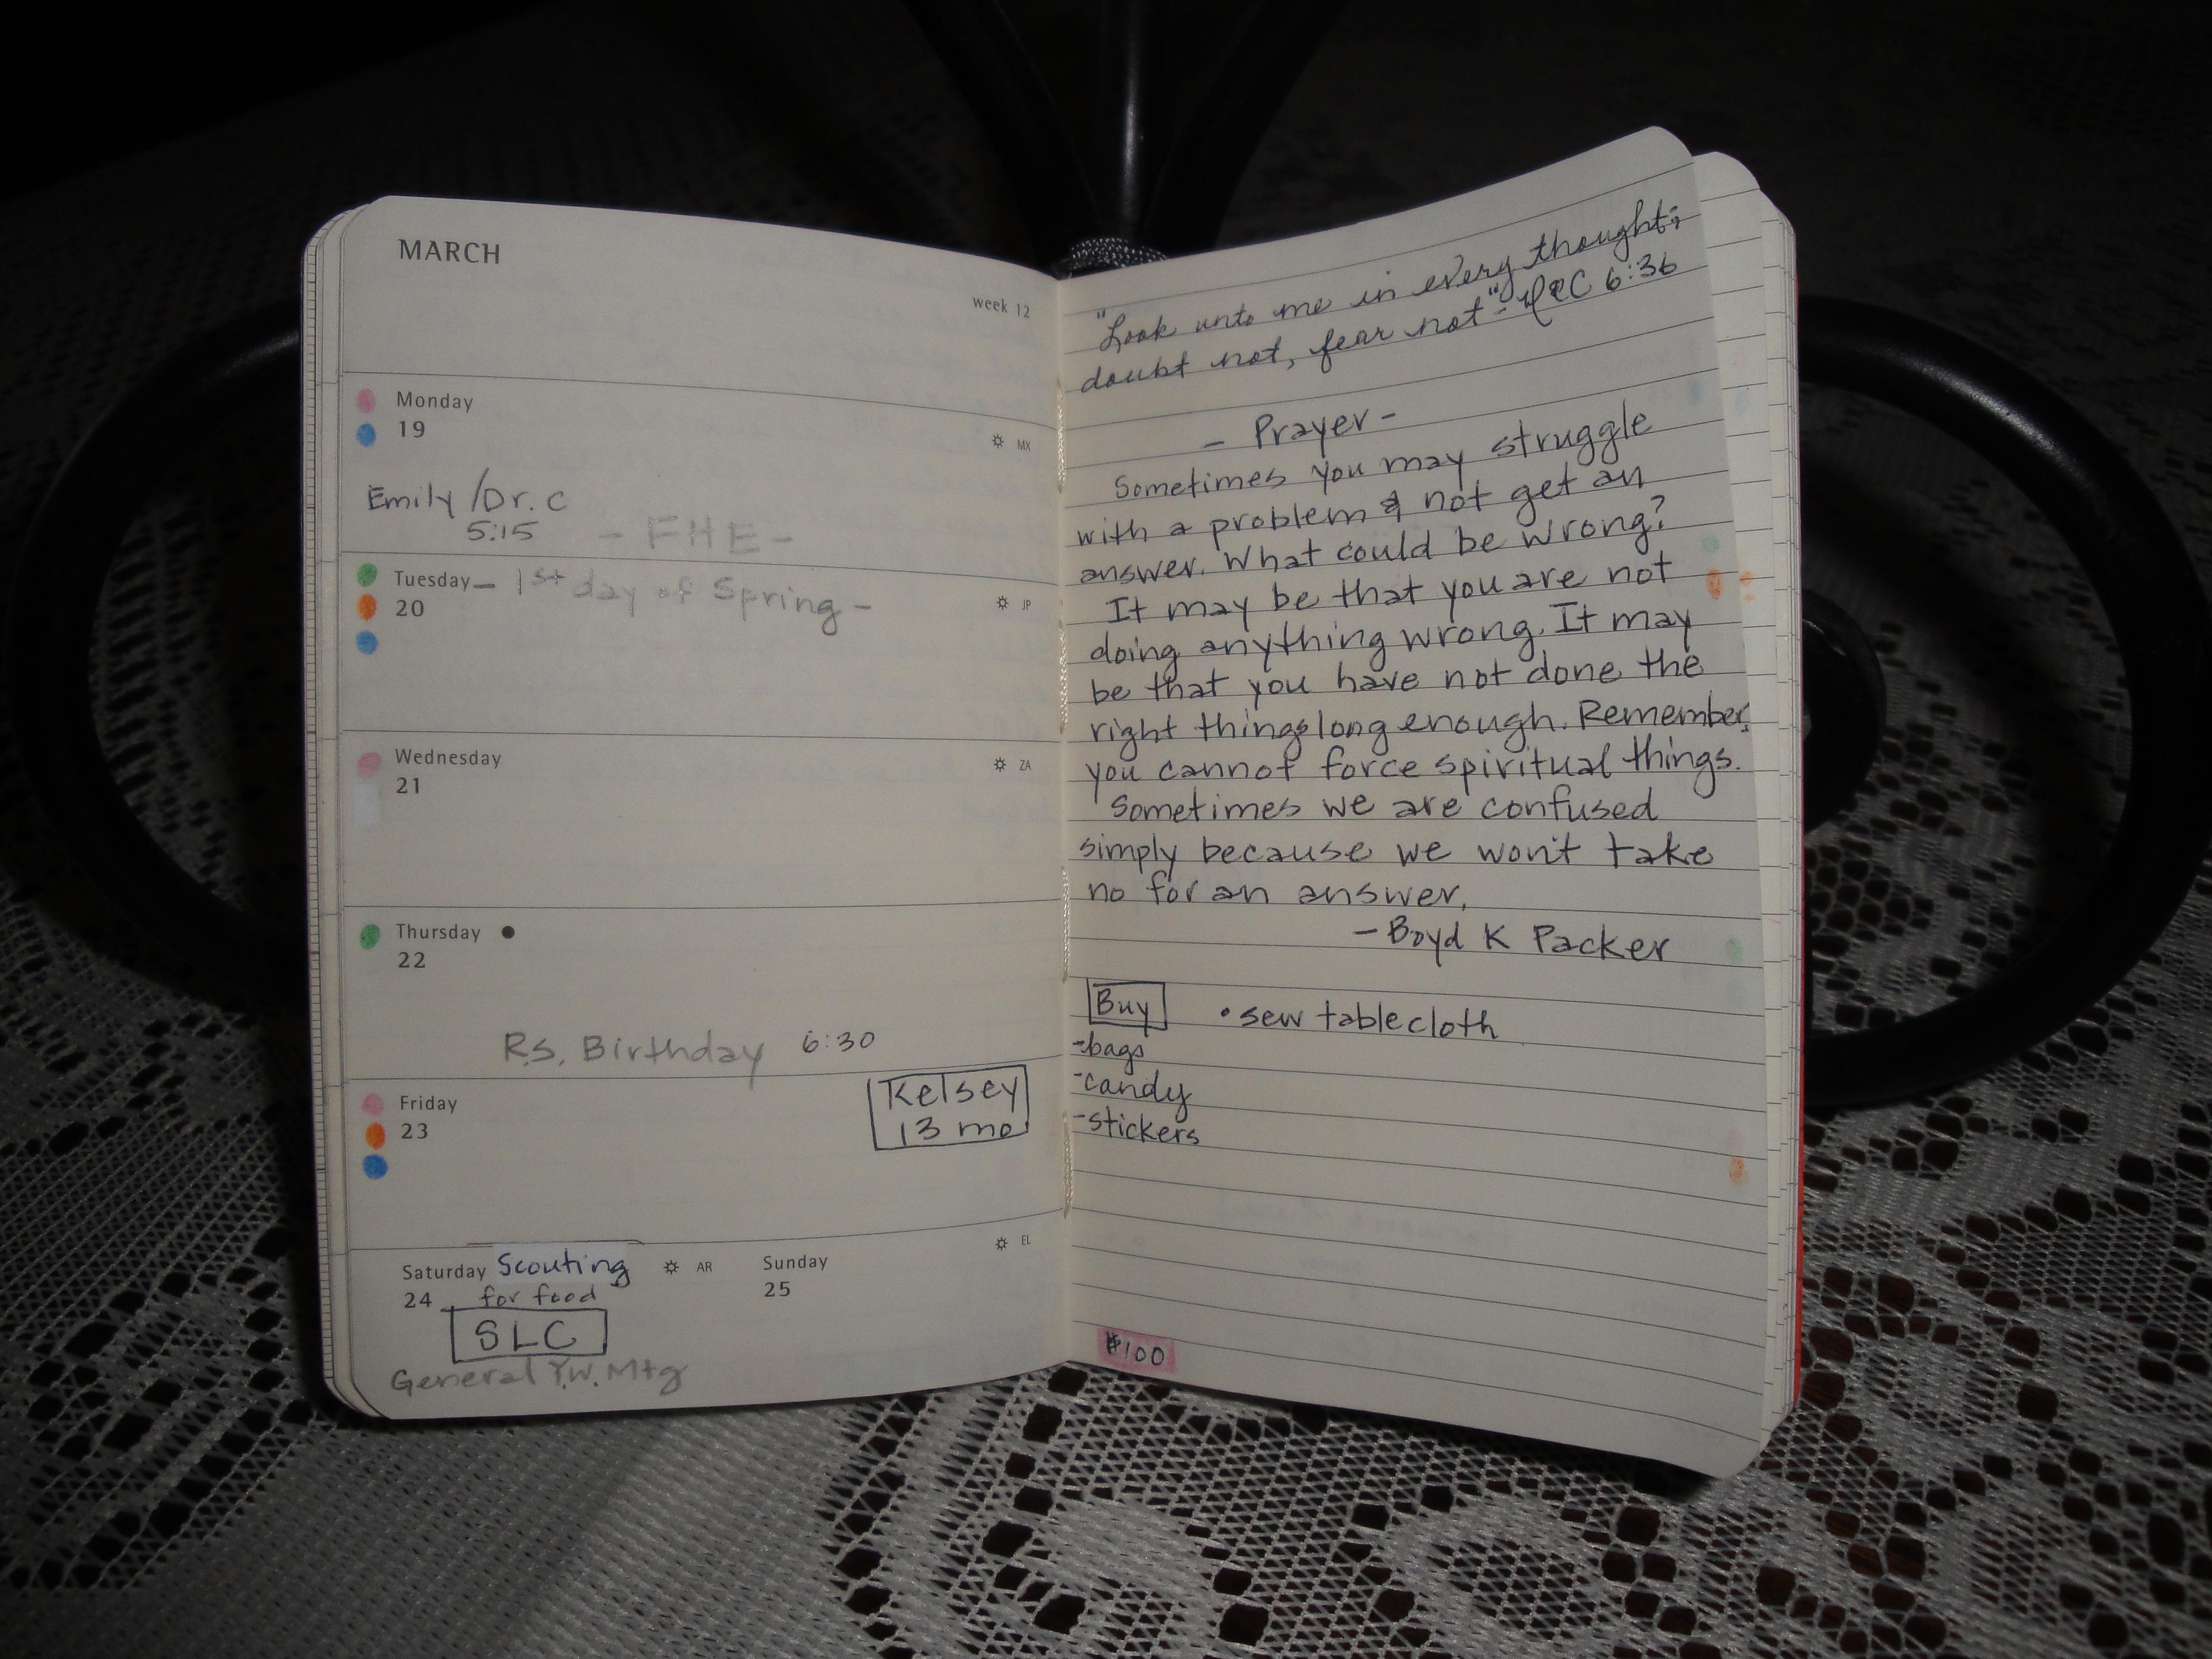 MARCH
week 12
Monday
19
MX
Emily/Dr. C
5:15 - FHE -
Tuesday - 1st day of Spring -
20
JP
Wednesday
21
ZA
Thursday
22
R.S. Birthday 6:30
Friday
23
Kelsey
13 mo
Saturday Scouting
24 for food
AR
SLC
General Y.W. Mtg
Sunday
25
EL
"Look unto me in every thought;
doubt not, fear not" - D&C 6:36
- Prayer -
Sometimes you may struggle
with a problem & not get an
answer. What could be wrong?
It may be that you are not
doing anything wrong. It may
be that you have not done the
right things long enough. Remember,
you cannot force spiritual things.
Sometimes we are confused
simply because we won't take
no for an answer.
- Boyd K Packer
Buy • sew tablecloth
-bags
-candy
-stickers
#100